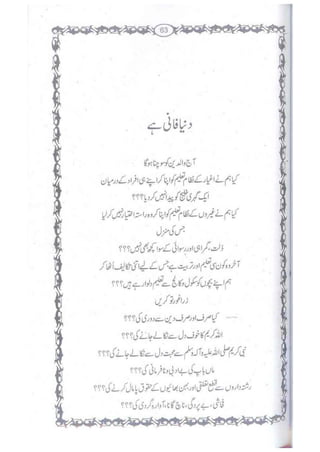 63
دنیا فانی ہے
آج والدین کو سوچنا ہوگا
کیا ہم نے اغیار کے نظام تعلیم کو اپنا کر اپنے ہی افراد کے درمیان
ایک گہری خلیج کو پیدا نہیں کردیا؟؟؟
کیا ہم نے غیروں کے نظام تعلیم کو اپنا کر وہ راستہ اختیار نہیں کرلیا
جس کی منزل
ذلت، گمراہی اور رسوائی کے سوا کچھ بھی نہیں؟؟؟
آخر وہ کون سی تعلیم اور تربیت ہے جس کے لیے اتنی تکالیف اٹھا کر
ہم اپنے بچوں کو سکول و کالج سے تعلیم دلوا رہے ہیں؟؟؟
ذرا غور تو کریں
کیا صرف اور صرف دین سے دوری کی؟؟؟
اللہ کریم کا خوف دل سے نکالے جانے کی؟؟؟
نبی کریم صلی اللہ علیہ وآلہ وسلم سے محبت دل سے نکالے جانے کی؟؟؟
ماں باپ کی بے ادبی و نافرمانی کی؟؟؟
رشتہ داروں سے قطع تعلقی اور بہن بھائیوں کے حقوق پامال کرنے کی؟؟؟
فحاشی، بے پردگی، ناچ گانا، آوارہ گردی کی؟؟؟